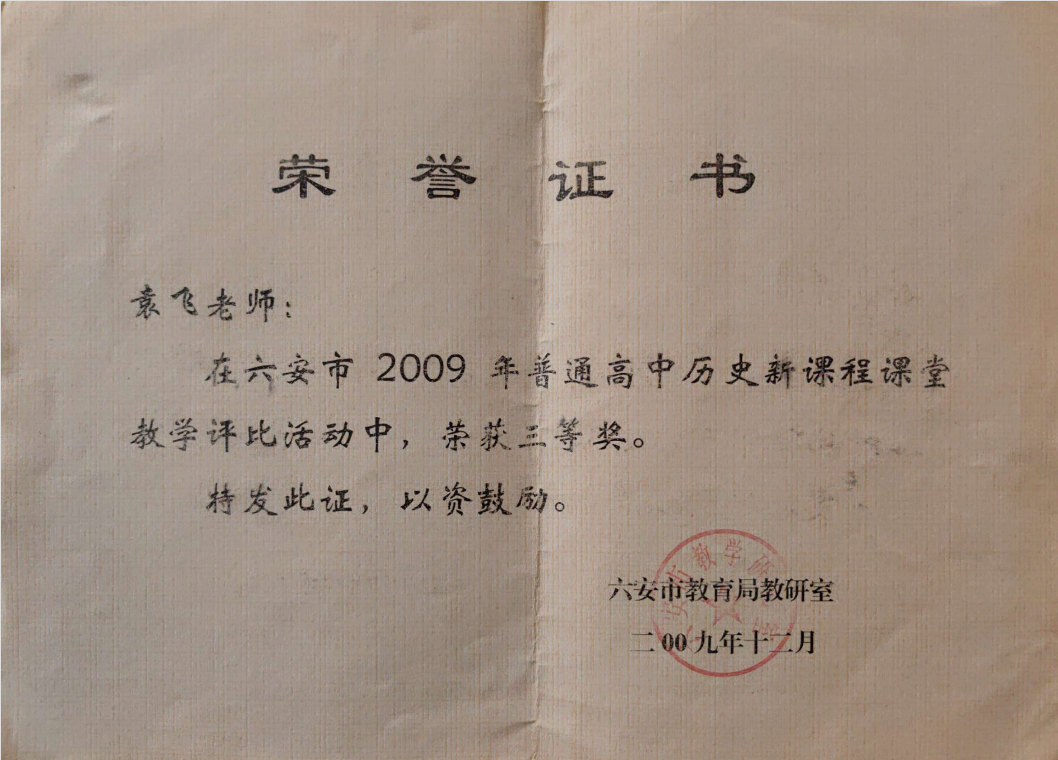 荣誉证书
袁飞老师：
在六安市 2009 年普通高中历史新课程课堂
教学评比活动中，荣获三等奖。
特发此证，以资鼓励。
六安市教育局教研室
二00九年十二月